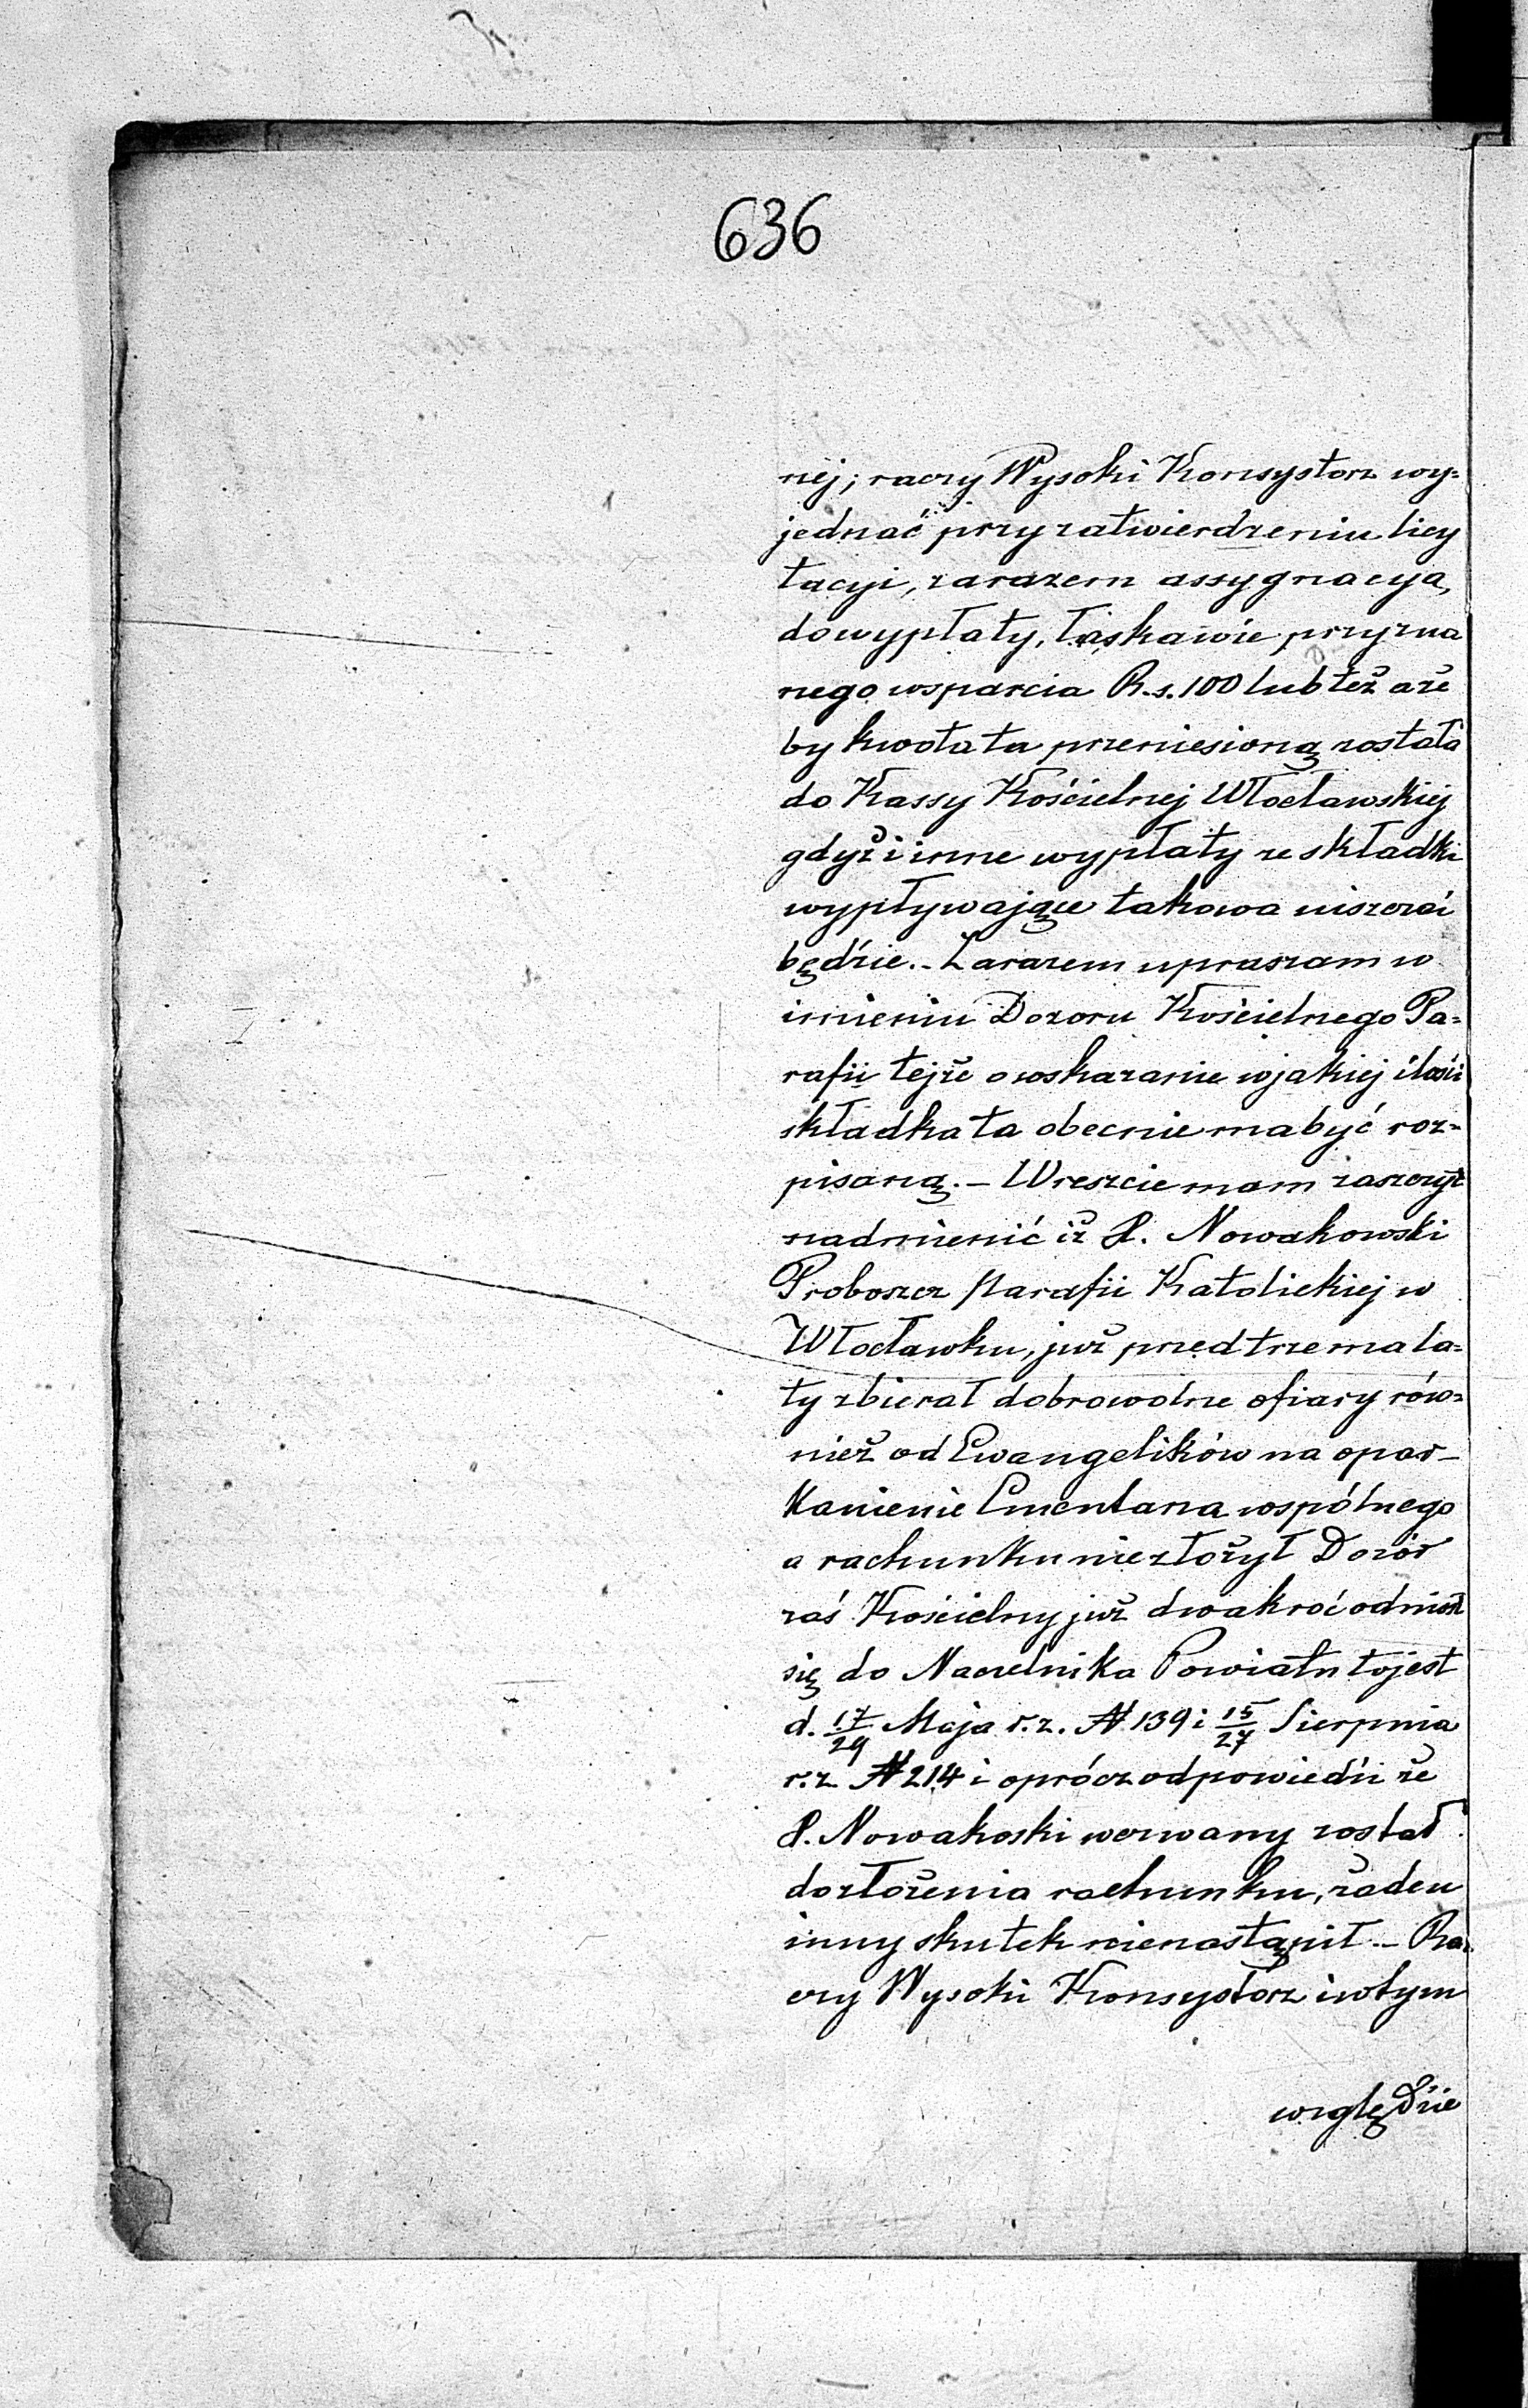 636
nej; raczy Wysoki Konsystorz wy=
jednać przy zatwierdzeniu licy
tacyi, zarazem assygnacyą
do wypłaty, łaskawie przyzna
nego wsparcia R.s. 100 lub też aże
by kwota ta przeniesioną została
do Kassy Kościelnej Włocławskiej
gdyż i inne wypłaty ze składki
wypływające takowa uiszczać
będzie. - Zarazem upraszam w
imieniu Dozoru Kościelnego Pa=
rafii tejże o wskazanie w jakiej ilości
składka ta obecnie ma być roz=
pisaną. - Wreszcie mam zaszczyt
nadmienić iż X. Nowakowski
Proboszcz Parafii Katolickiej w
Włocławku, już przed trzema la=
ty zbierał dobrowolne ofiary rów=
nież od Ewangelików na opar-
kanienie Cmentarza wspólnego
a rachunku nie złożył Dozór
zaś Kościelny już dwakroć odniósł
się do Naczelnika Powiatu to jest
d. 17/29 Maja r.z. N 139 i 15/27 Sierpnia
r.z N 214 i oprócz odpowiedzi że
X. Nowakoski wezwany został
do złożenia rachunku, żaden
inny skutek nienastąpił. - Ra=
czy Wysoki Konsystorz i w tym
względzie